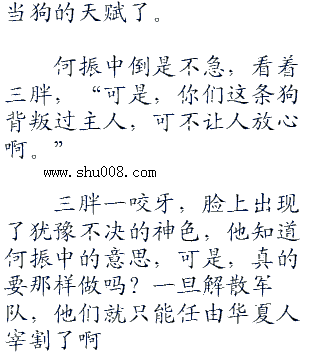 当狗的天赋了。
何振中倒是不急，看着
三胖，“可是，你们这条狗
背叛过主人，可不让人放心
啊。”
www.shu008.com
三胖一咬牙，脸上出现
了犹豫不决的神色，他知道
何振中的意思，可是，真的
要那样做吗？一旦解散军
队，他们就只能任由华夏人
宰割了啊